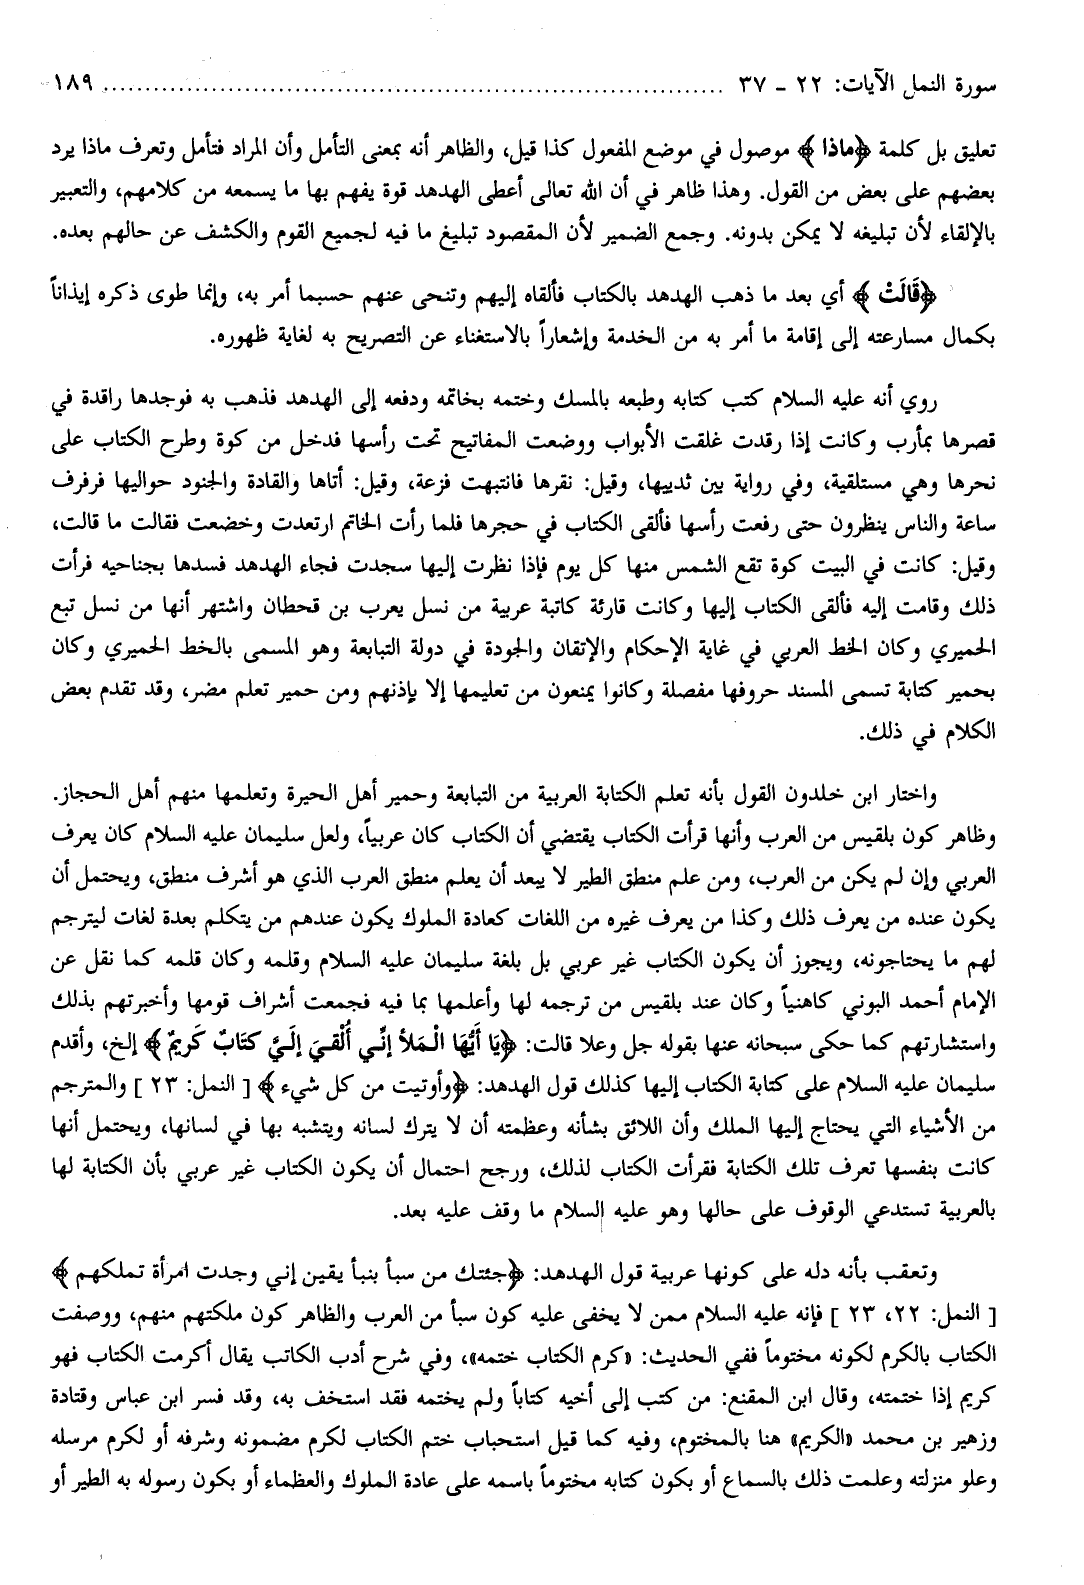 سورة النمل الآيات: ٢٢ ـ ٣٧ ........................................................................... ١٨٩
تعليق بل كلمة ﴿ماذا﴾ موصول في موضع المفعول كذا قيل، والظاهر أنه بمعنى التأمل وأن المراد فتأمل وتعرف ماذا يرد
بعضهم على بعض من القول. وهذا ظاهر في أن الله تعالى أعطى الهدهد قوة يفهم بها ما يسمعه من كلامهم، والتعبير
بالإلقاء لأن تبليغه لا يمكن بدونه. وجمع الضمير لأن المقصود تبليغ ما فيه لجميع القوم والكشف عن حالهم بعده.
﴿قَالَتْ﴾ أي بعد ما ذهب الهدهد بالكتاب فألقاه إليهم وتنحى عنهم حسبما أمر به، وإنما طوى ذكره إيذاناً
بكمال مسارعته إلى إقامة ما أمر به من الخدمة وإشعاراً بالاستغناء عن التصريح به لغاية ظهوره.
روي أنه عليه السلام كتب كتابه وطبعه بالمسك وختمه بخاتمه ودفعه إلى الهدهد فذهب به فوجدها راقدة في
قصرها بمأرب وكانت إذا رقدت غلقت الأبواب ووضعت المفاتيح تحت رأسها فدخل من كوة وطرح الكتاب على
نحرها وهي مستلقية، وفي رواية بين ثدييها، وقيل: نقرها فانتبهت فزعة، وقيل: أتاها والقادة والجنود حواليها فرفرف
ساعة والناس ينظرون حتى رفعت رأسها فألقى الكتاب في حجرها فلما رأت الخاتم ارتعدت وخضعت فقالت ما قالت،
وقيل: كانت في البيت كوة تقع الشمس منها كل يوم فإذا نظرت إليها سجدت فجاء الهدهد فسدها بجناحيه فرأت
ذلك وقامت إليه فألقى الكتاب إليها وكانت قارئة كاتبة عربية من نسل يعرب بن قحطان واشتهر أنها من نسل تبع
الحميري وكان الخط العربي في غاية الإحكام والإتقان والجودة في دولة التبابعة وهو المسمى بالخط الحميري وكان
بحمير كتابة تسمى المسند حروفها مفصلة وكانوا يمنعون من تعليمها إلا بإذنهم ومن حمير تعلم مضر، وقد تقدم بعض
الكلام في ذلك.
واختار ابن خلدون القول بأنه تعلم الكتابة العربية من التبابعة وحمير أهل الحيرة وتعلمها منهم أهل الحجاز.
وظاهر كون بلقيس من العرب وأنها قرأت الكتاب يقتضي أن الكتاب كان عربياً، ولعل سليمان عليه السلام كان يعرف
العربي وإن لم يكن من العرب، ومن علم منطق الطير لا يبعد أن يعلم منطق العرب الذي هو أشرف منطق، ويحتمل أن
يكون عنده من يعرف ذلك وكذا من يعرف غيره من اللغات كعادة الملوك يكون عندهم من يتكلم بعدة لغات ليترجم
لهم ما يحتاجونه، ويجوز أن يكون الكتاب غير عربي بل بلغة سليمان عليه السلام وقلمه وكان قلمه كما نقل عن
الإمام أحمد البوني كاهنياً وكان عند بلقيس من ترجمه لها وأعلمها بما فيه فجمعت أشراف قومها وأخبرتهم بذلك
واستشارتهم كما حكى سبحانه عنها بقوله جل وعلا قالت: ﴿يَا أَيُّهَا الْمَلأ إنِّي أُلْقيَ إلَيَّ كتَابٌ كَريمٌ﴾ إلخ، وأقدم
سليمان عليه السلام على كتابة الكتاب إليها كذلك قول الهدهد: ﴿وأوتيت من كل شيء﴾ [ النمل: ٢٣ ] والمترجم
من الأشياء التي يحتاج إليها الملك وأن اللائق بشأنه وعظمته أن لا يترك لسانه ويتشبه بها في لسانها، ويحتمل أنها
كانت بنفسها تعرف تلك الكتابة فقرأت الكتاب لذلك، ورجح احتمال أن يكون الكتاب غير عربي بأن الكتابة لها
بالعربية تستدعي الوقوف على حالها وهو عليه السلام ما وقف عليه بعد.
وتعقب بأنه دله على كونها عربية قول الهدهد: ﴿جئتك من سبأ بنبأ يقين إني وجدت امرأة تملكهم﴾
[ النمل: ٢٢، ٢٣ ] فإنه عليه السلام ممن لا يخفى عليه كون سبأ من العرب والظاهر كون ملكتهم منهم، ووصفت
الكتاب بالكرم لكونه مختوماً ففي الحديث: «كرم الكتاب ختمه»، وفي شرح أدب الكاتب يقال أكرمت الكتاب فهو
كريم إذا ختمته، وقال ابن المقنع: من كتب إلى أخيه كتاباً ولم يختمه فقد استخف به، وقد فسر ابن عباس وقتادة
وزهير بن محمد «الكريم» هنا بالمختوم، وفيه كما قيل استحباب ختم الكتاب لكرم مضمونه وشرفه أو لكرم مرسله
وعلو منزلته وعلمت ذلك بالسماع أو بكون كتابه مختوماً باسمه على عادة الملوك والعظماء أو بكون رسوله به الطير أو